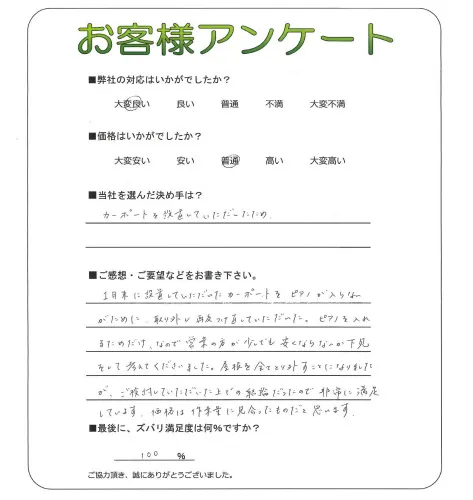 お客様アンケート
■弊社の対応はいかがでしたか？
大変良い 良い 普通 不満 大変不満
■価格はいかがでしたか？
大変安い 安い 普通 高い 大変高い
■当社を選んだ決め手は？
カーポートを設置していただいたため.
■ご感想・ご要望などをお書き下さい。
1月末に設置していただいたカーポートを ピアノが入らない
がために、取り外し 再度つけ直していただいた。ピアノを入れ
るためだけ、なので 営業の方が少しでも 安くならないか下見
をして 考えてくださいました。屋根を全てとり外すことになりました
が、ご検討していただいた上での結論だったので 非常に満足
しています。価格は作業量に見合ったものだと思います.
■最後に、ズバリ満足度は何％ですか？
100 %
ご協力頂き、誠にありがとうございました。